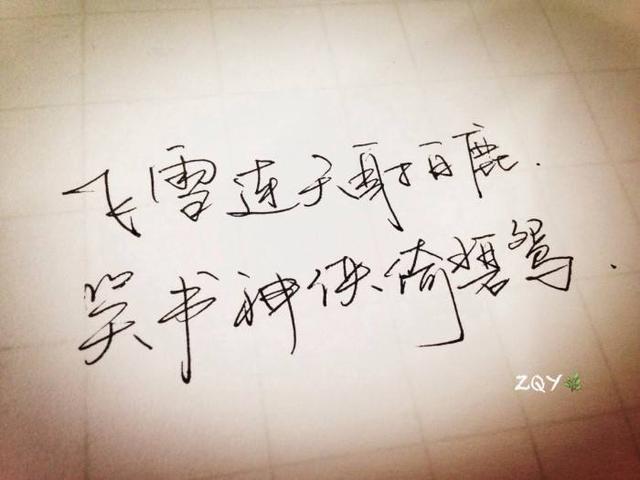 飞雪连天射白鹿.
笑书神侠倚碧鸳.
ZQY